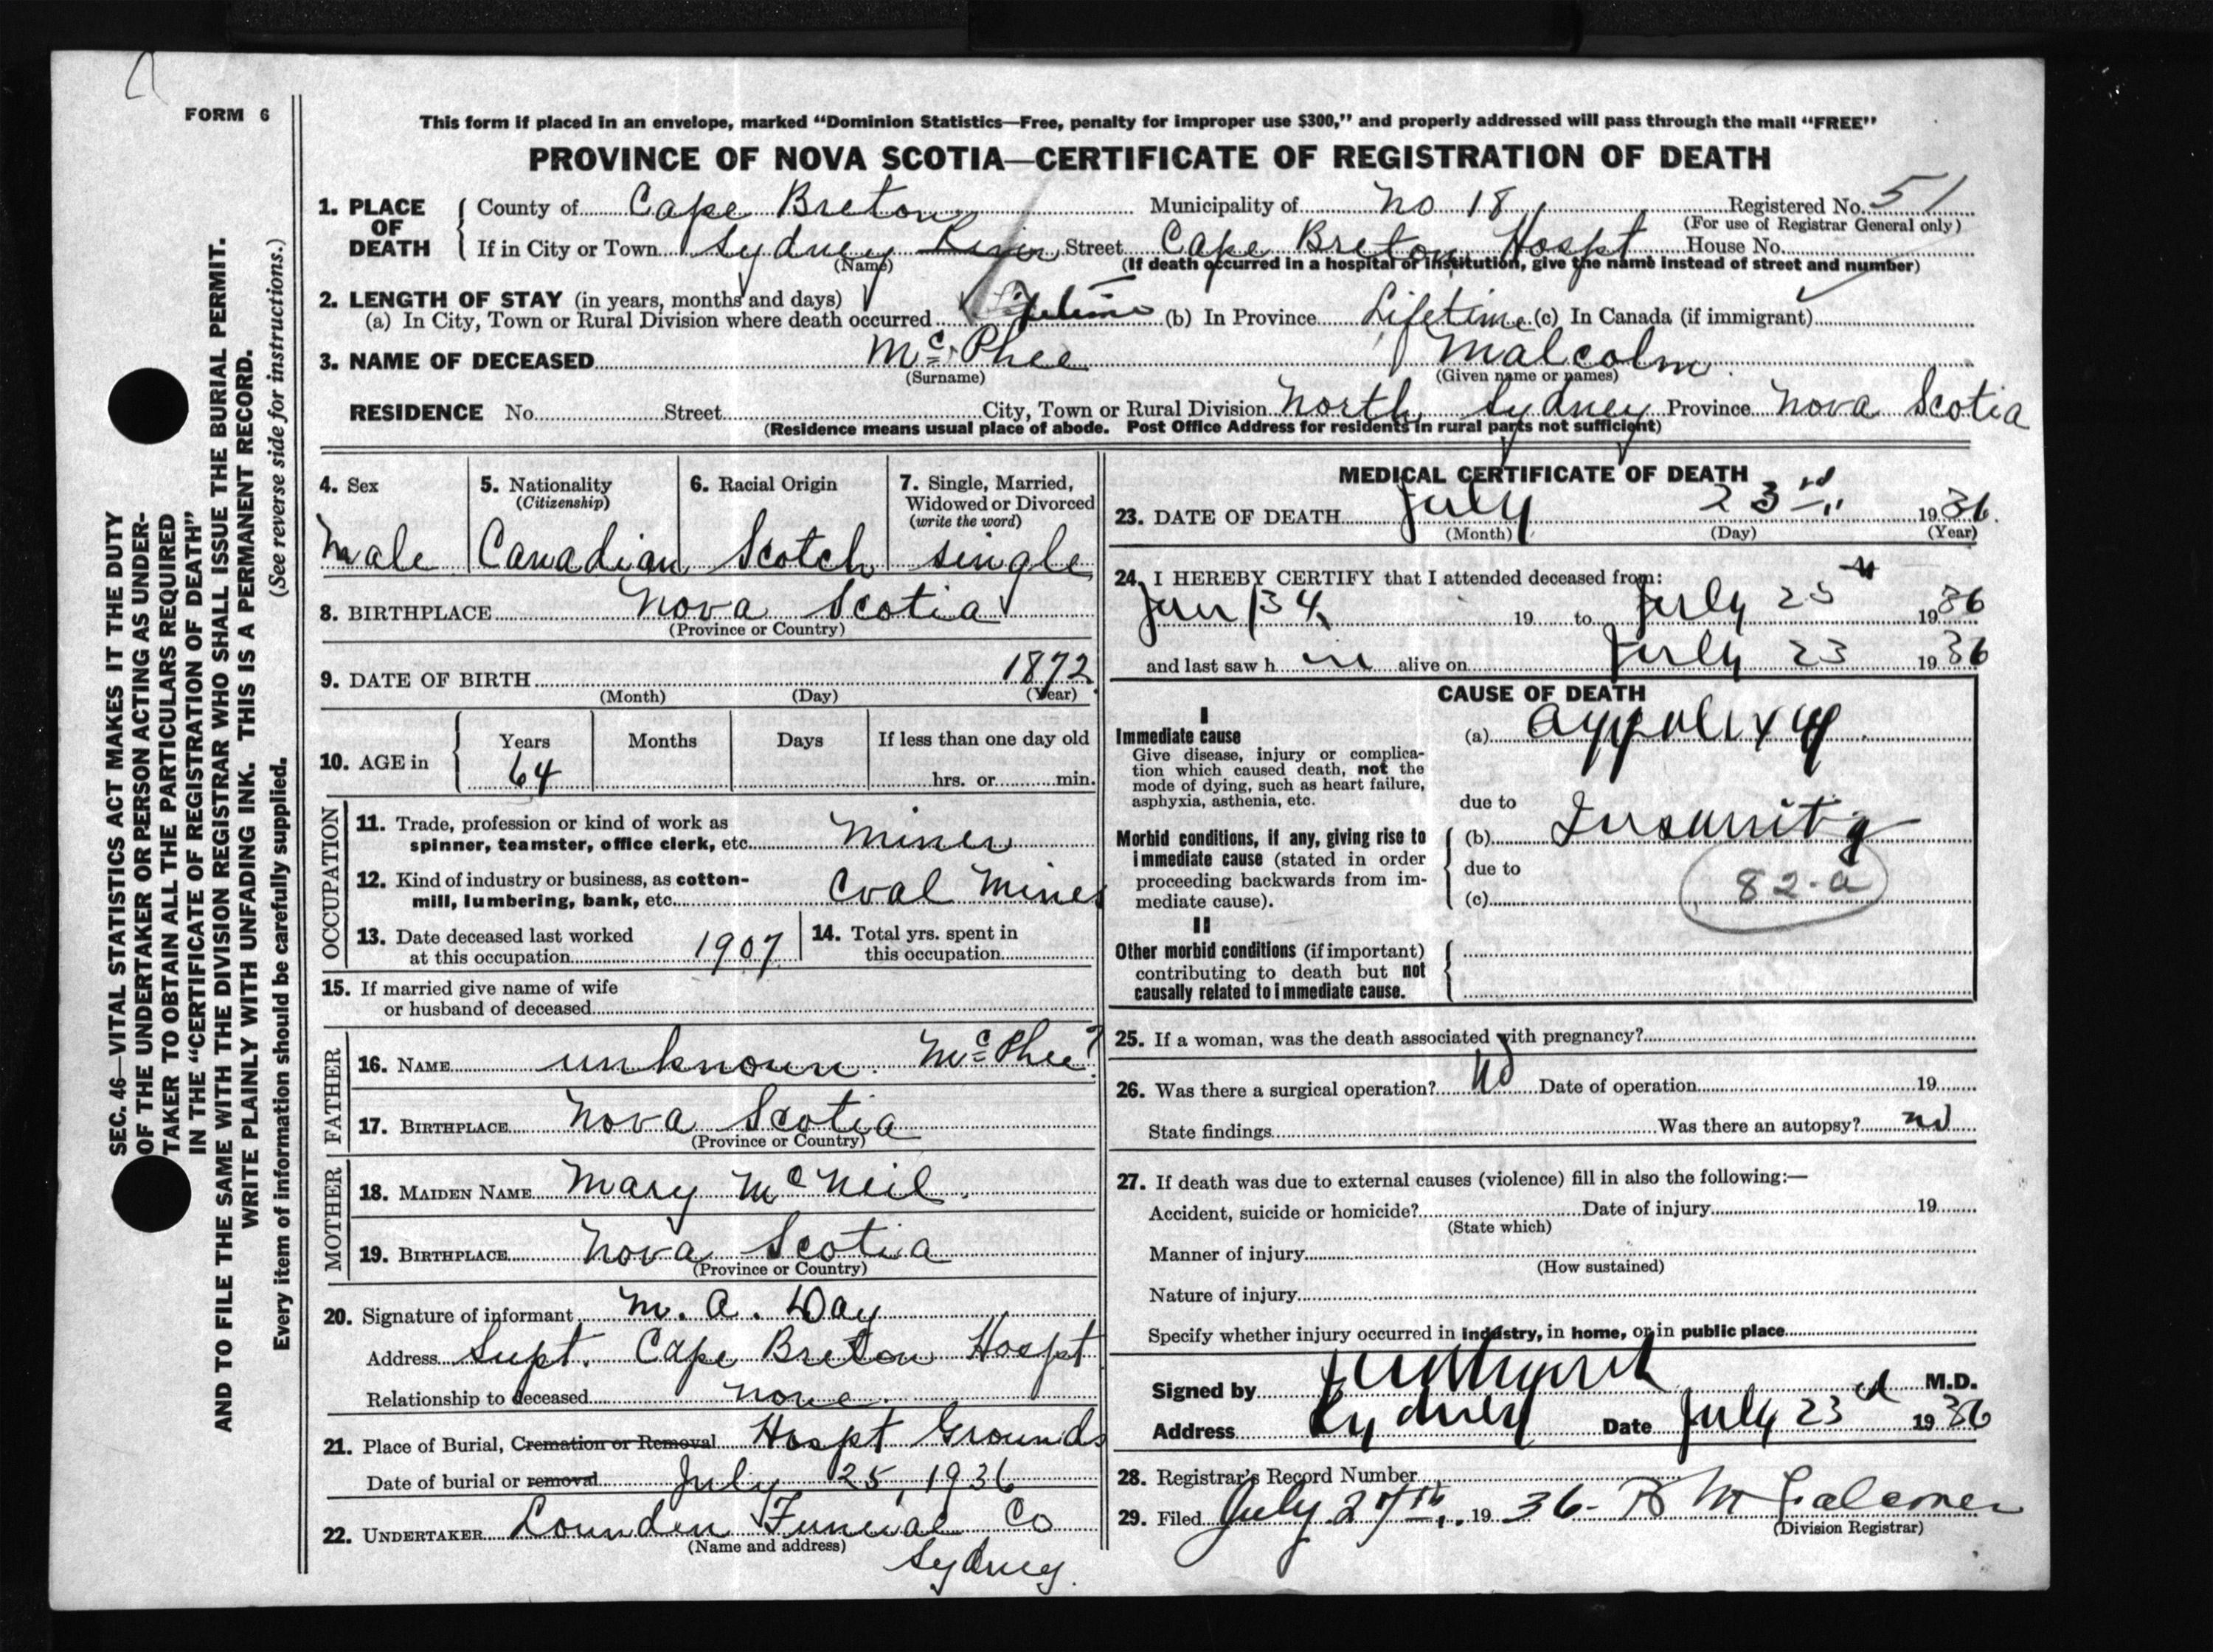 FORM 6
This form if placed in an envelope, marked “Dominion Statistics—Free, penalty for improper use $300,” and properly addressed will pass through the mail “FREE”
PROVINCE OF NOVA SCOTIA—CERTIFICATE OF REGISTRATION OF DEATH
1. PLACE OF DEATH County of Cape Breton Municipality of No 18 Registered No. 51
(For use of Registrar General only)
If in City or Town Sydney River Street Cape Breton Hospt House No.
(Name) (If death occurred in a hospital or institution, give the name instead of street and number)
2. LENGTH OF STAY (in years, months and days)
(a) In City, Town or Rural Division where death occurred Lifetime (b) In Province Lifetime (c) In Canada (if immigrant)
3. NAME OF DECEASED McPhee Malcolm
(Surname) (Given name or names)
RESIDENCE No. Street City, Town or Rural Division North Sydney Province Nova Scotia
(Residence means usual place of abode. Post Office Address for residents in rural parts not sufficient)
4. Sex 5. Nationality (Citizenship) 6. Racial Origin 7. Single, Married, Widowed or Divorced (write the word)
Male Canadian Scotch single
8. BIRTHPLACE Nova Scotia
(Province or Country)
9. DATE OF BIRTH 1872
(Month) (Day) (Year)
10. AGE in Years Months Days If less than one day old
64 hrs. or min.
OCCUPATION
11. Trade, profession or kind of work as
spinner, teamster, office clerk, etc. Miner
12. Kind of industry or business, as cotton-
mill, lumbering, bank, etc. Coal Mines
13. Date deceased last worked
at this occupation 1907
14. Total yrs. spent in
this occupation
15. If married give name of wife
or husband of deceased
FATHER
16. NAME unknown McPhee?
17. BIRTHPLACE Nova Scotia
(Province or Country)
MOTHER
18. MAIDEN NAME Mary McNeil
19. BIRTHPLACE Nova Scotia
(Province or Country)
20. Signature of informant M. A. Day
Address Supt. Cape Breton Hospt
Relationship to deceased none
21. Place of Burial, Cremation or Removal Hospt Grounds
Date of burial or removal July 25, 1936
22. UNDERTAKER Lounden Funeral Co
(Name and address)
Sydney
MEDICAL CERTIFICATE OF DEATH
23. DATE OF DEATH July 23rd 1936
(Month) (Day) (Year)
24. I HEREBY CERTIFY that I attended deceased from:
Jan 34 19 to July 23 1936
and last saw h im alive on July 23 1936
CAUSE OF DEATH
I
Immediate cause
Give disease, injury or complica-
tion which caused death, not the
mode of dying, such as heart failure,
asphyxia, asthenia, etc.
(a) Appolixy
due to
Morbid conditions, if any, giving rise to
immediate cause (stated in order
proceeding backwards from im-
mediate cause).
(b) Insanity
due to
(c) 82-a
II
Other morbid conditions (if important)
contributing to death but not
causally related to immediate cause.
25. If a woman, was the death associated with pregnancy?
26. Was there a surgical operation? no Date of operation 19
State findings Was there an autopsy? no
27. If death was due to external causes (violence) fill in also the following:—
Accident, suicide or homicide? Date of injury 19
(State which)
Manner of injury
(How sustained)
Nature of injury
Specify whether injury occurred in industry, in home, or in public place
Signed by M.D.
Address Sydney Date July 23d 1936
28. Registrar's Record Number
29. Filed July 27th 1936 - B M Falconer
(Division Registrar)
SEC. 46—VITAL STATISTICS ACT MAKES IT THE DUTY
OF THE UNDERTAKER OR PERSON ACTING AS UNDER-
TAKER TO OBTAIN ALL THE PARTICULARS REQUIRED
IN THE “CERTIFICATE OF REGISTRATION OF DEATH”
AND TO FILE THE SAME WITH THE DIVISION REGISTRAR WHO SHALL ISSUE THE BURIAL PERMIT.
WRITE PLAINLY WITH UNFADING INK. THIS IS A PERMANENT RECORD.
Every item of information should be carefully supplied. (See reverse side for instructions.)